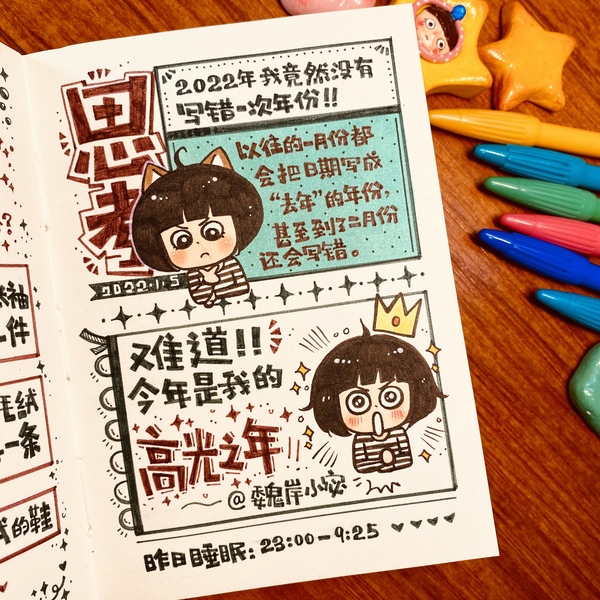 思考
2022年我竟然没有
写错一次年份!!
以往的一月份都
会把日期写成
“去年”的年份,
甚至到了二月份
还会写错。
2022.1.5
难道!!
今年是我的
高光之年
@魏岸小姿
昨日睡眠: 23:00-9:25
袖
一件
毛绒
一条
的鞋